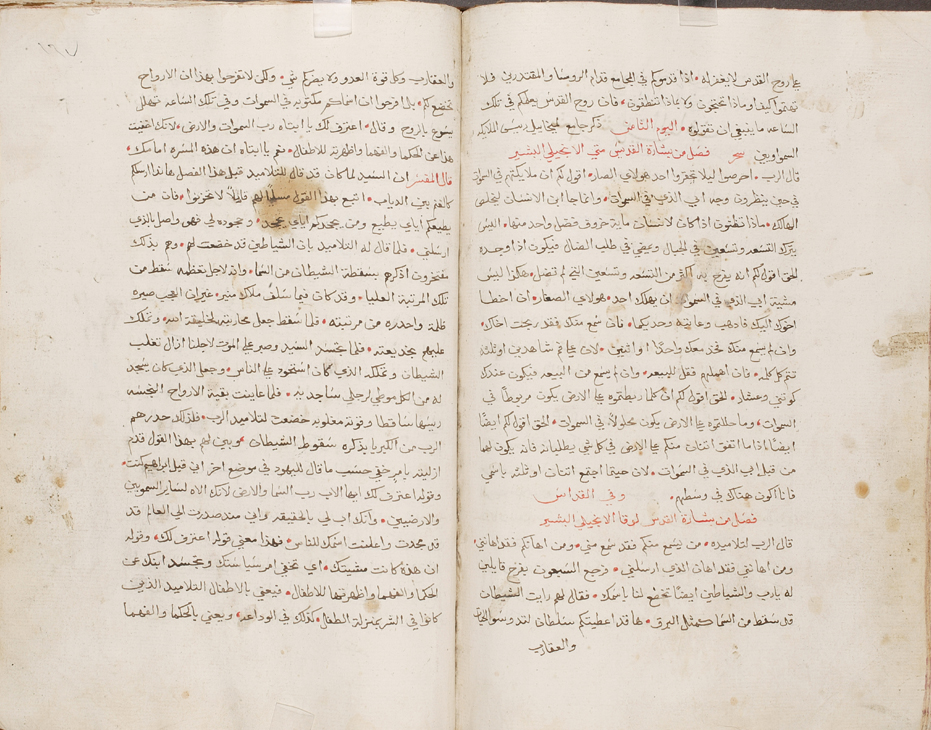 على روح القدس لا يغفر له • اذا قدموكم في المجامع قدام الروسا والمقتدرين فلا
تهتموا كيف او بماذا تحتجون ولا بماذا تنطقون • فان روح القدس يعلمكم في تلك
الساعه ما ينبغي ان تقولوه • اليوم الثامن ذكر جامع لميخاييل رييس الملايكه
السماويين سحر فصل من بشارة القديس متي الانجيلي البشير
قال الرب • احرصوا ليلا تحقروا احد هولاي الصغار • اقول لكم ان ملايكتهم في السموات
في حين ينظرون وجه ابي الذي في السموات • وانما جا ابن الانسان ليخلص
الهالك • ماذا تظنون اذا كان لانسان مايه خروف فضل واحد منها • اليس
يترك التسعه وتسعين في الجبال ويمضي في طلب الضال فيكون اذا وجده
الحق اقول لكم انه يفرح به اكثر من التسعه وتسعين التي لم تضل • هكذا ليس
مشية ابي الذي في السموات ان يهلك احد • هولاي الصغار • ان اخطا
اخوك اليك فاذهب وعاتبه وحديكما • فان سمع منك فقد ربحت اخاك •
وان لم يسمع منك فخذ معك واحدًا او اثنين • لان على فم شاهدين او ثلثه
تتم كل كلمه • فان اهملهم فقل للبيعه • وان لم يسمع من البيعه فيكون عندك
كوثني وعشار • الحق اقول لكم ان كلما ربطتموه على الارض يكون مربوطًا في
السموات • وما حللتموه على الارض يكون محلولاً في السموات • الحق اقول لكم ايضًا
ايضًا اذا ما اتفق اثنان منكم على الارض في كل شي يطلبانه فانه يكون لهما
من قبل ابي الذي في السموات • لان حيثما اجتمع اثنان او ثلثه باسمي
فانا اكون هناك في وسطهم • وفي القداس
فصل من بشارة القديس لوقا الانجيلي البشير
قال الرب لتلاميذه • من يسمع منكم فقد سمع مني • ومن اهانكم فقد اهانني •
ومن اهانني فقد اهان الذي ارسلني • فرجع السبعون بفرح قايلين
له يارب والشياطين ايضًا تخضع لنا باسمك • فقال لهم رايت الشيطان
قد سقط من السما كمثل البرق • ها قد اعطيتكم سلطان لتدوسوا الحيات
والعقارب
١٦٧
والعقارب وكل قوة العدو ولا يضركم شي • ولكن لا تفرحوا بهذا ان الارواح
تخضع لكم • بل افرحوا ان اسماكم مكتوبه في السموات وفي تلك الساعه تهلل
يسوع بالروح وقال • اعترف لك يا ابتاه رب السموات والارض • لانك اخفيت
هذا عن الحكما والفهما واظهرته للاطفال • نعم يا ابتاه ان هذه المسره امامك •
قال المفسر ان السيد لما كان قد قال للتلاميذ قبل هذا الفصل ها انذا ارسلكم
كالغنم بين الدياب • اتبع بهذا القول مسليًا لهم قايلاً لا تحزنوا • فان من
يطيعكم اياي يطيع ومن يجحدكم اياي يجحد • وجحوده لي فهو واصل بالذي
ارسلني • فلما قال له التلاميذ بان الشياطين قد خضعت لهم • وهم بذلك
مفتخرون اذكرهم بسقطة الشيطان من السما • وانه لاجل تعظمه سقط من
تلك المرتبة العليا • وقد كان فيما سلف ملاك منير • غير ان العجب صيره
ظلمة واحدره من مرتبته • فلما سقط جعل محاربته لخليقة الله • وتملك
عليهم بخديعته • فلما تجسد السيد وصبر على الموت لاجلنا ازال تغلب
الشيطان وتملكه الذي كان استحوذ على الناس • وجعل الذي كان يسجد
له من الكل موطي لرجلي ساجديه • فلما عاينت بقية الارواح النجسه
رييسها ساقطا وقوته مغلوبه خضعت لتلاميذ الرب • فلذلك حذرهم
الرب من الكبريا بذكره سقوط الشيطان • وبين لهم بهذا القول قدم
ازليته بامر خفي حسب ما قال لليهود في موضع اخر اني قبل ابراهيم كنت •
وقوله اعترف لك ايها الاب رب السما والارض لانك الاه لساير السمويين
والارضيين • وانك اب لي بالحقيقه واني منذ صدرت الى العالم قد
قد مجدت واعلنت اسمك للناس • فهذا معني قوله اعترف لك • وقوله
ان هذه كانت مشيتك • اي تخفي امر سياستك وتجسد ابنك عن
الحكما والفهما واظهرتها للاطفال • فيعني بالاطفال التلاميذ الذين
كانوا في الشر بمنزلة الطفل • كذلك في الوداعه • ويعني بالحكما والفهما